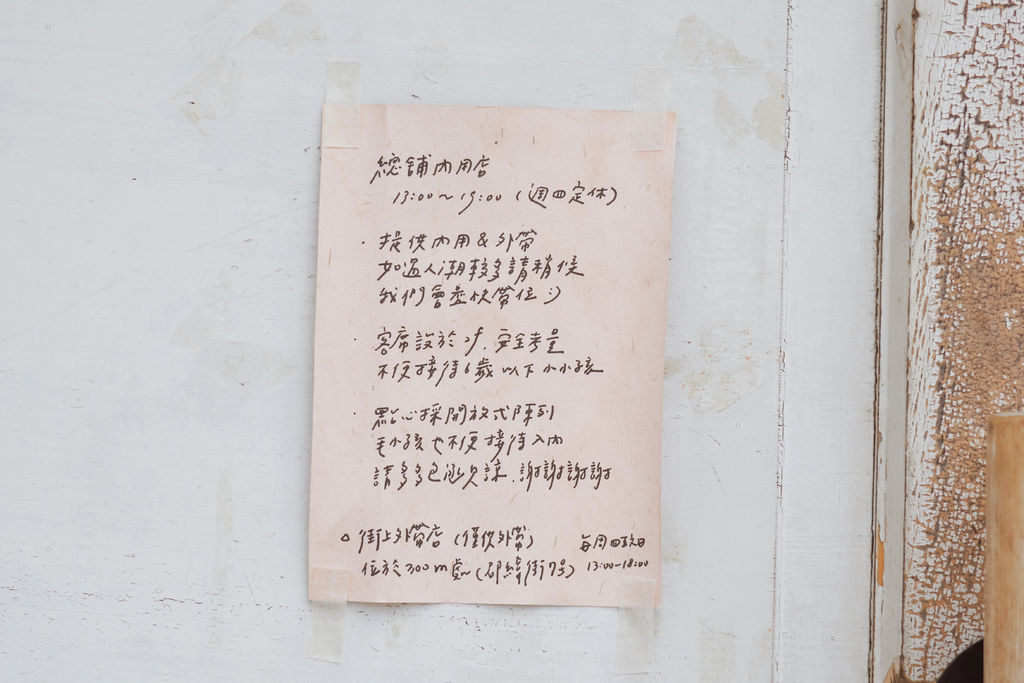 總舖內用店
13:00~19:00 (週四定休)
· 提供內用&外帶
如遇人潮較多請稍候
我們會盡快帶位 :)
· 客席設於2f. 安全考量
不便接待6歲以下小小孩
· 點心採開放式陳列
毛小孩也不便接待入內
請多多包涵見諒. 謝謝謝謝
△ 街上外帶店 (僅供外帶) 每周四五六日
位於300m處 (郡緯街7号) 13:00-18:00